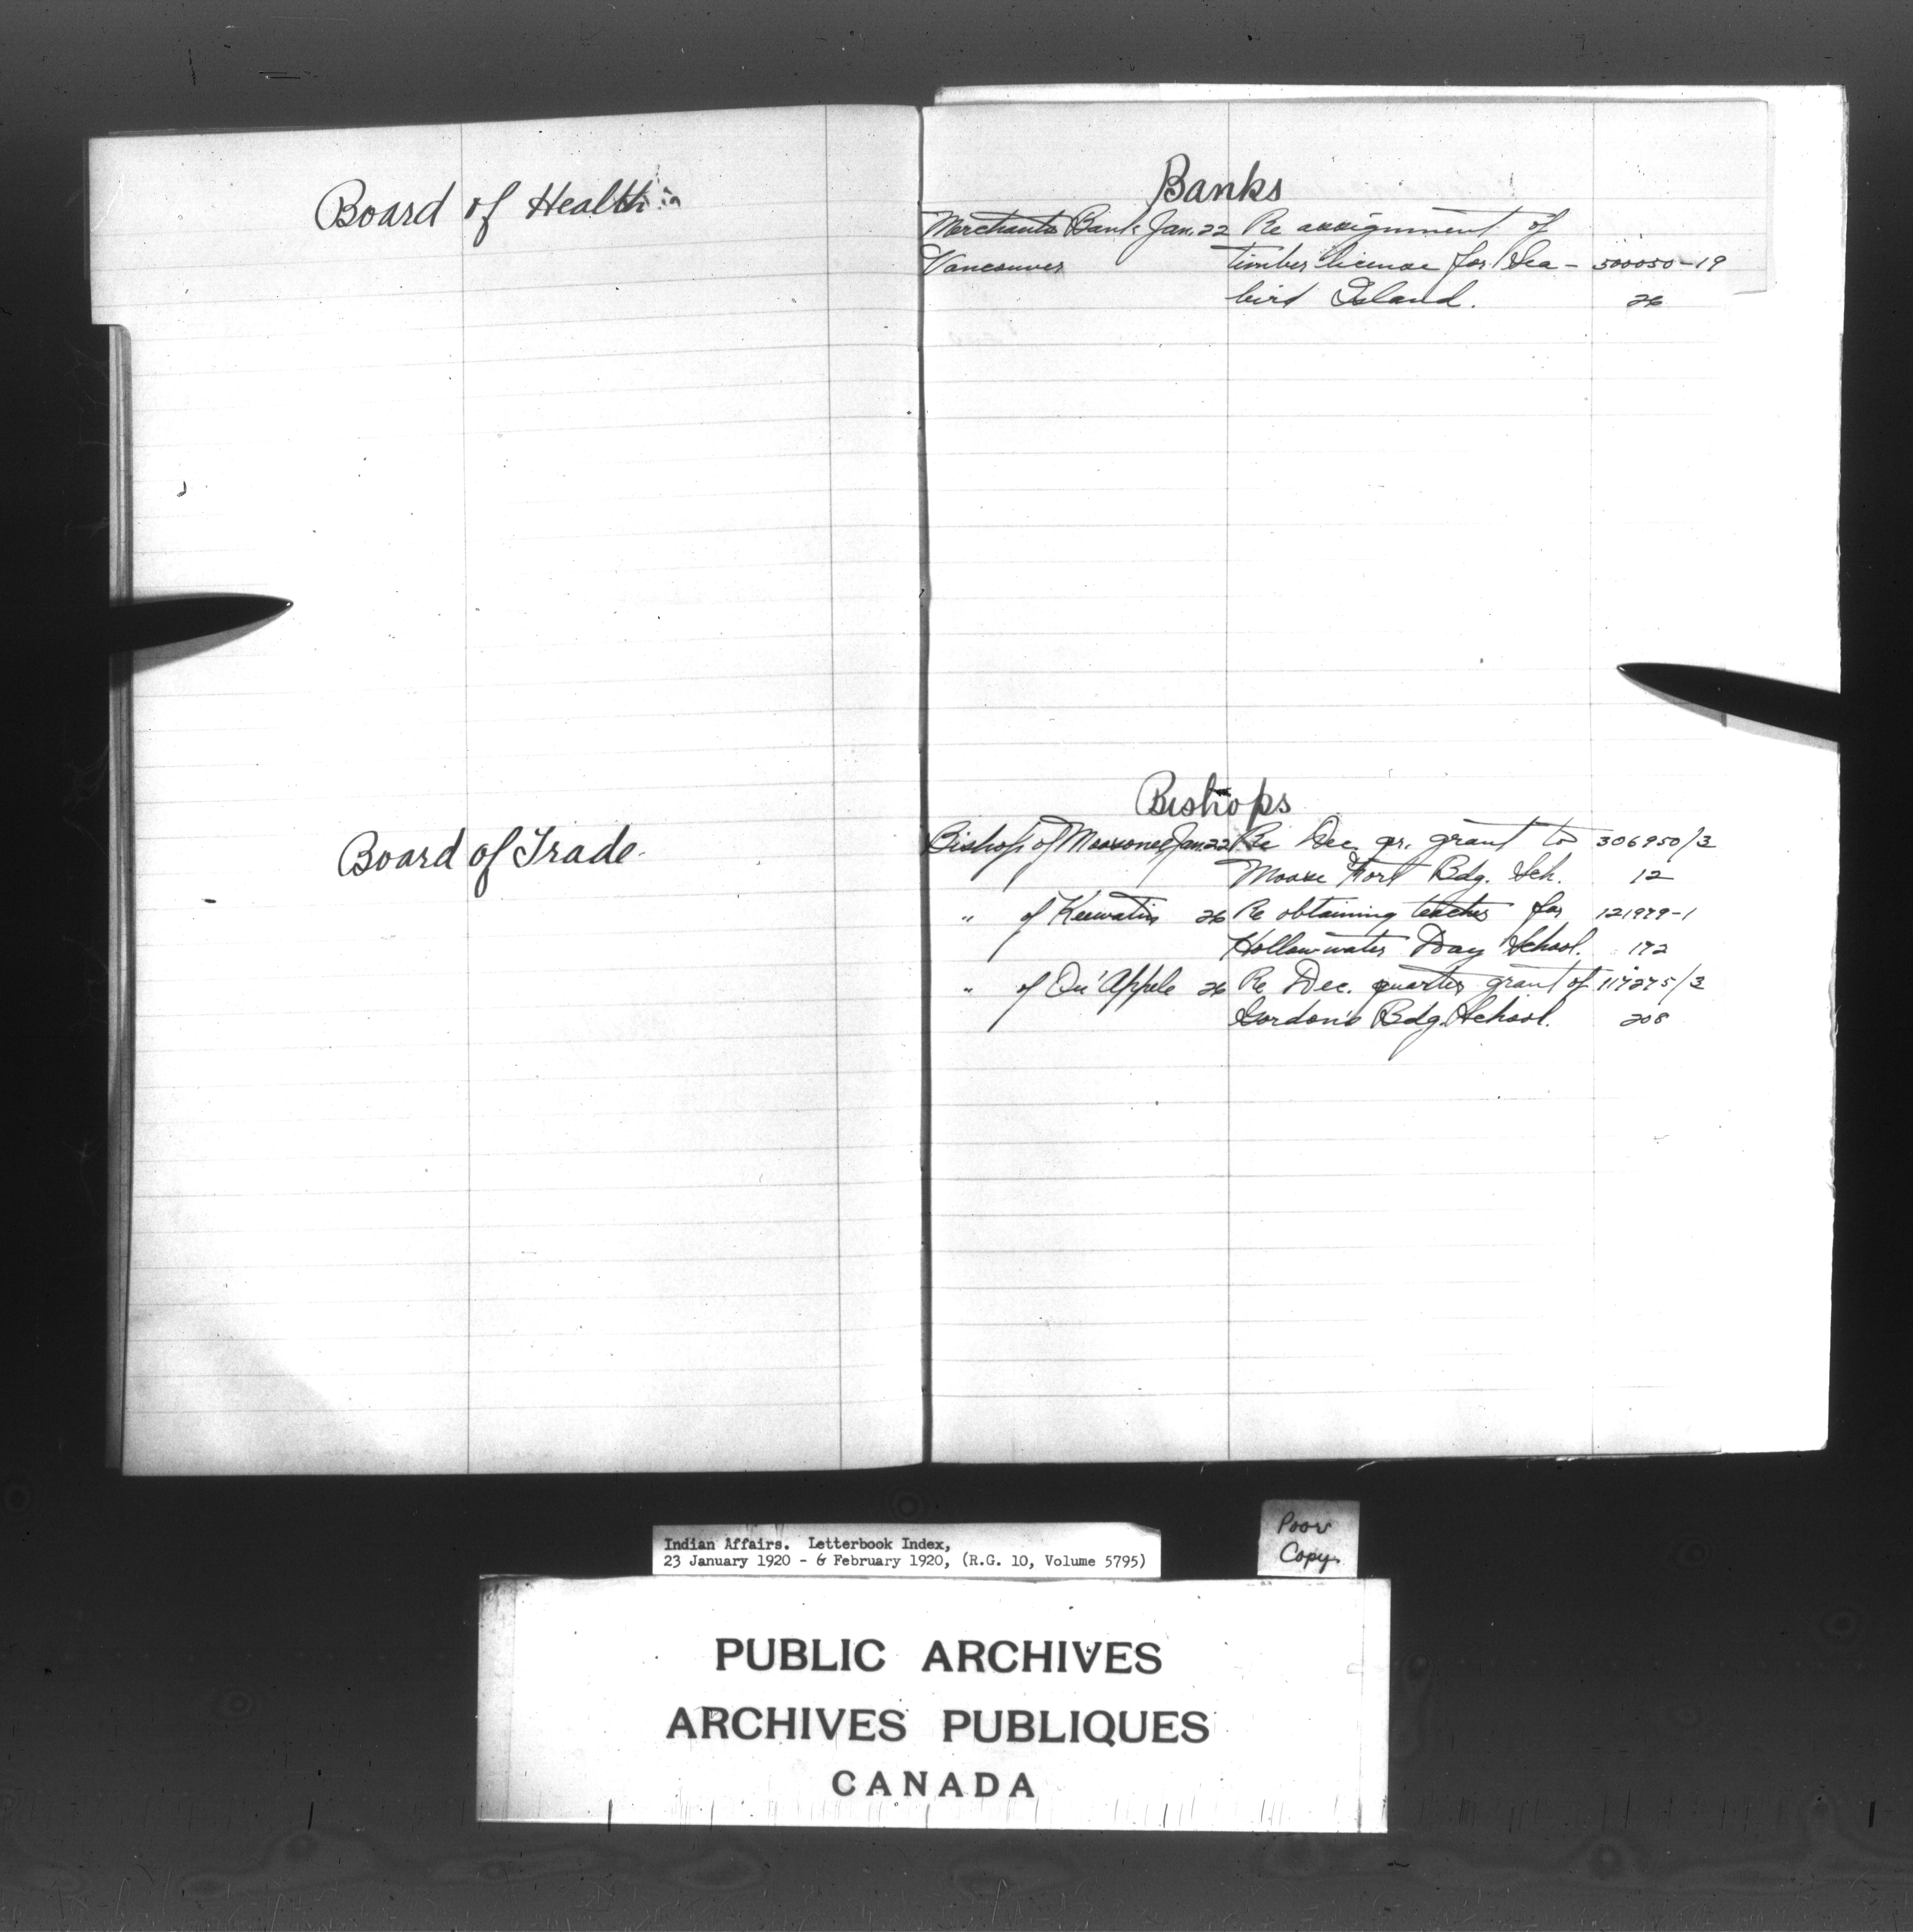 Board of Health
Board of Trade
Banks
Merchants Bank Jan. 22 Re assignment of
Vancouver timber license for Sea- 500050-19
bird Island. 26
Bishops
Bishop of Moosonee Jan. 22 Re Dec. qr. grant to 306950/3
Moose Fort Bdg. Sch. 12
" of Keewatin 26 Re obtaining teacher for 121979-1
Hollowwater Day School. 172
" of Qu'Appele 26 Re Dec. quarter grant of 117275/3
Gordon's Bdg. School. 208
Indian Affairs. Letterbook Index,
23 January 1920 - 6 February 1920, (R.G. 10, Volume 5795)
Poor
Copy.
PUBLIC ARCHIVES
ARCHIVES PUBLIQUES
CANADA